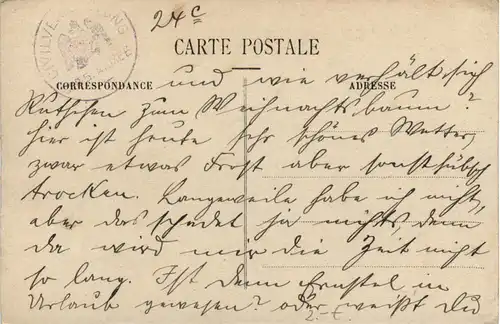 24c
CIVILVERWALTUNG
CARTE POSTALE
CORRESPONDANCE
ADRESSE
und wie verhält sich
zum Weihnachtsbaum?
hier ist heute sehr schönes Wetter,
zwar etwas Frost aber sonst hübsch
trocken. Langeweile habe ich nicht,
aber das schadet ja nichts denn
da wird mir die Zeit nicht
so lang. Ist denn Ernstel in
Urlaub gewesen? oder weißt Du
2.-€.